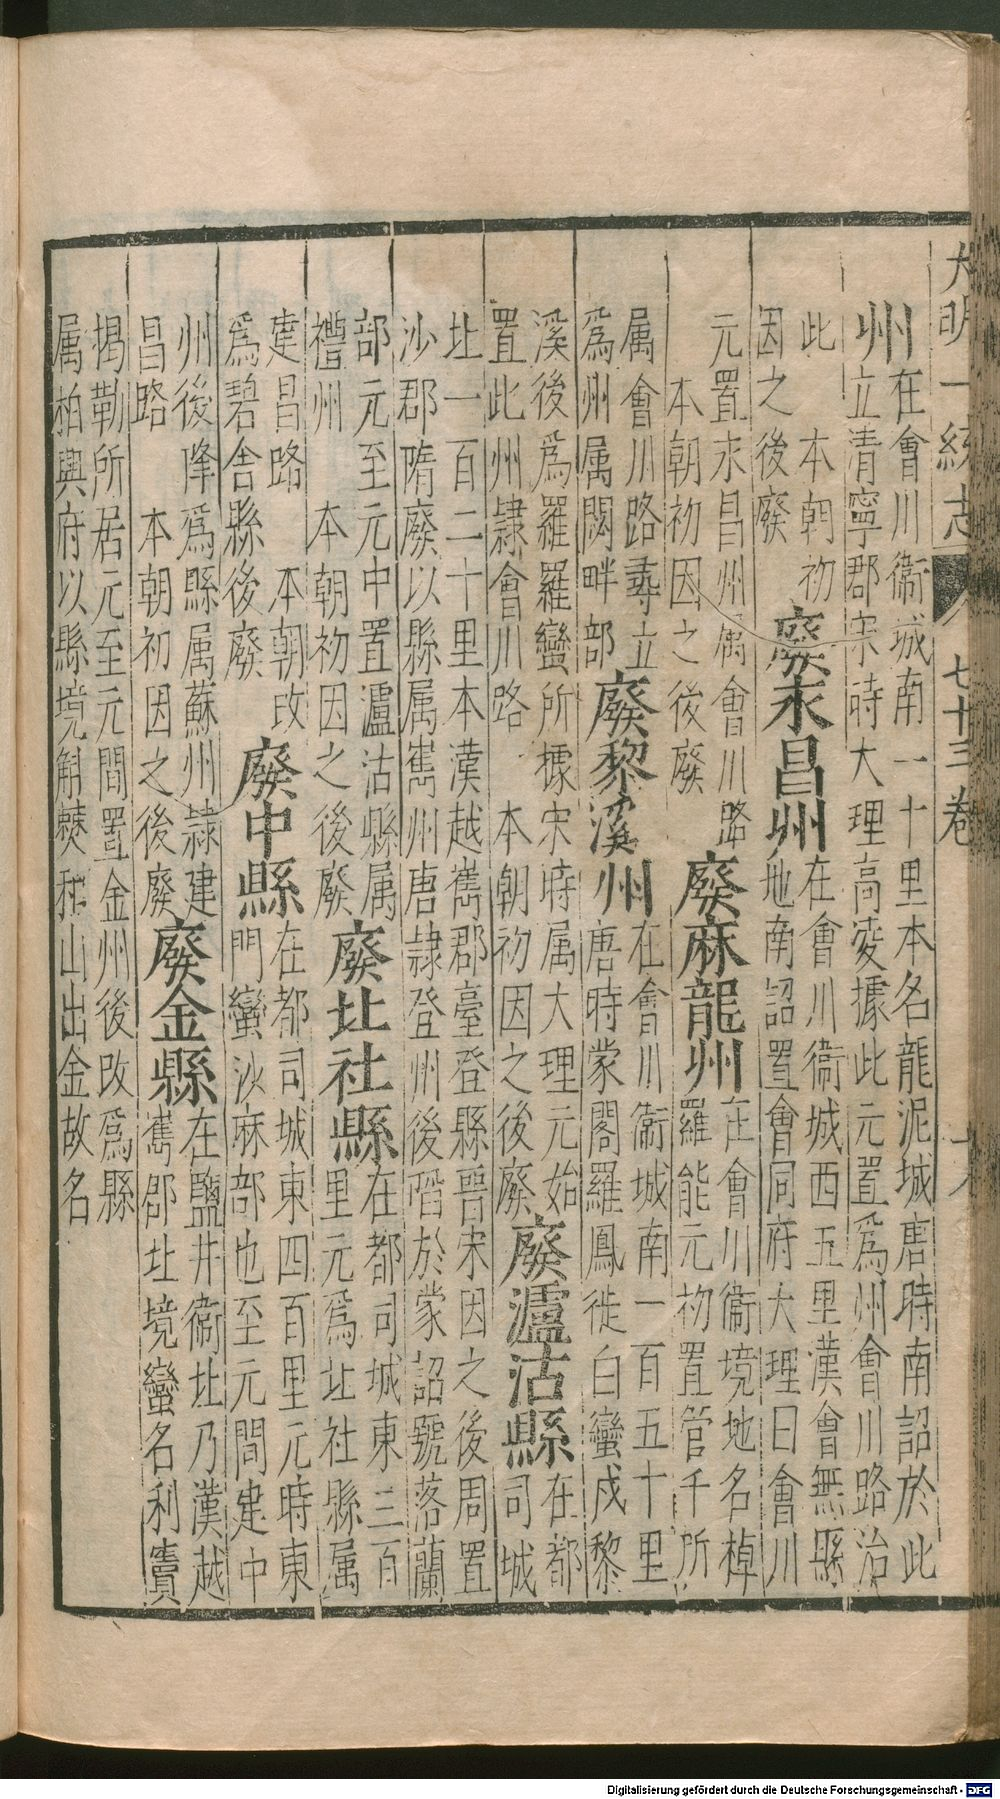 大明一統志 七十三卷
州
在會川衞城南一十里本名龍泥城唐時南詔於此
立清寧郡宋時大理高変據此元置爲州會川路治
此 本朝初
因之後廢
廢永昌州
在會川衞城西五里漢會無縣
地南詔置會同府大理曰會川
元置永昌州属會川路
本朝初因之後廢
廢麻龍州
在會川衞境地名棹
羅能元初置管千所
属會川路尋立
爲州属閟畔部
廢黎溪州
在會川衞城南一百五十里
唐時蒙閣羅鳳徙白蠻戍黎
溪後爲羅羅蠻所據宋時属大理元始
置此州隷會川路 本朝初因之後廢
廢瀘沽縣
在都
司城
北一百二十里本漢越嶲郡臺登縣晉宋因之後周置
沙郡隋廢以縣属嶲州唐隷登州後於蒙詔號落蘭
部元至元中置瀘沽縣属
禮州 本朝初因之後廢
廢北社縣
在都司城東三百
里元爲北社縣属
建昌路 本朝改
爲碧舍縣後廢
廢中縣
在都司城東四百里元時東
門蠻沙麻部也至元間建中
州後降爲縣属蘇州隷建
昌路 本朝初因之後廢
廢金縣
在鹽井衞北乃漢越
嶲郡北境蠻名利寶
揭勒所居元至元間置金州後改爲縣
属柏興府以縣境斛僰和山出金故名
Digitalisierung gefördert durch die Deutsche Forschungsgemeinschaft - DFG